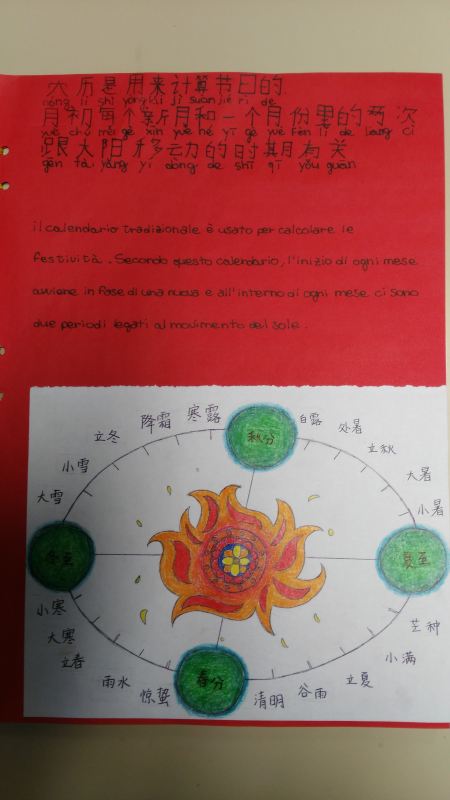 农历是用来计算节日的.
nóng lì shì yòng lái jì suàn jié rì de
月初每个新月和一个月份里的两次
yuè chū měi gè xīn yuè hé yī gè yuè fèn lǐ de liǎng cì
跟太阳移动的时期有关
gēn tài yáng yí dòng de shí qī yǒu guān
il calendario tradizionale è usato per calcolare le
festività. Secondo questo calendario, l'inizio di ogni mese
avviene in fase di una nuova e all'interno di ogni mese ci sono
due periodi legati al movimento del sole.
秋分
白露
处暑
立秋
大暑
小暑
夏至
芒种
小满
立夏
谷雨
清明
春分
惊蛰
雨水
立春
大寒
小寒
冬至
大雪
小雪
立冬
降霜
寒露